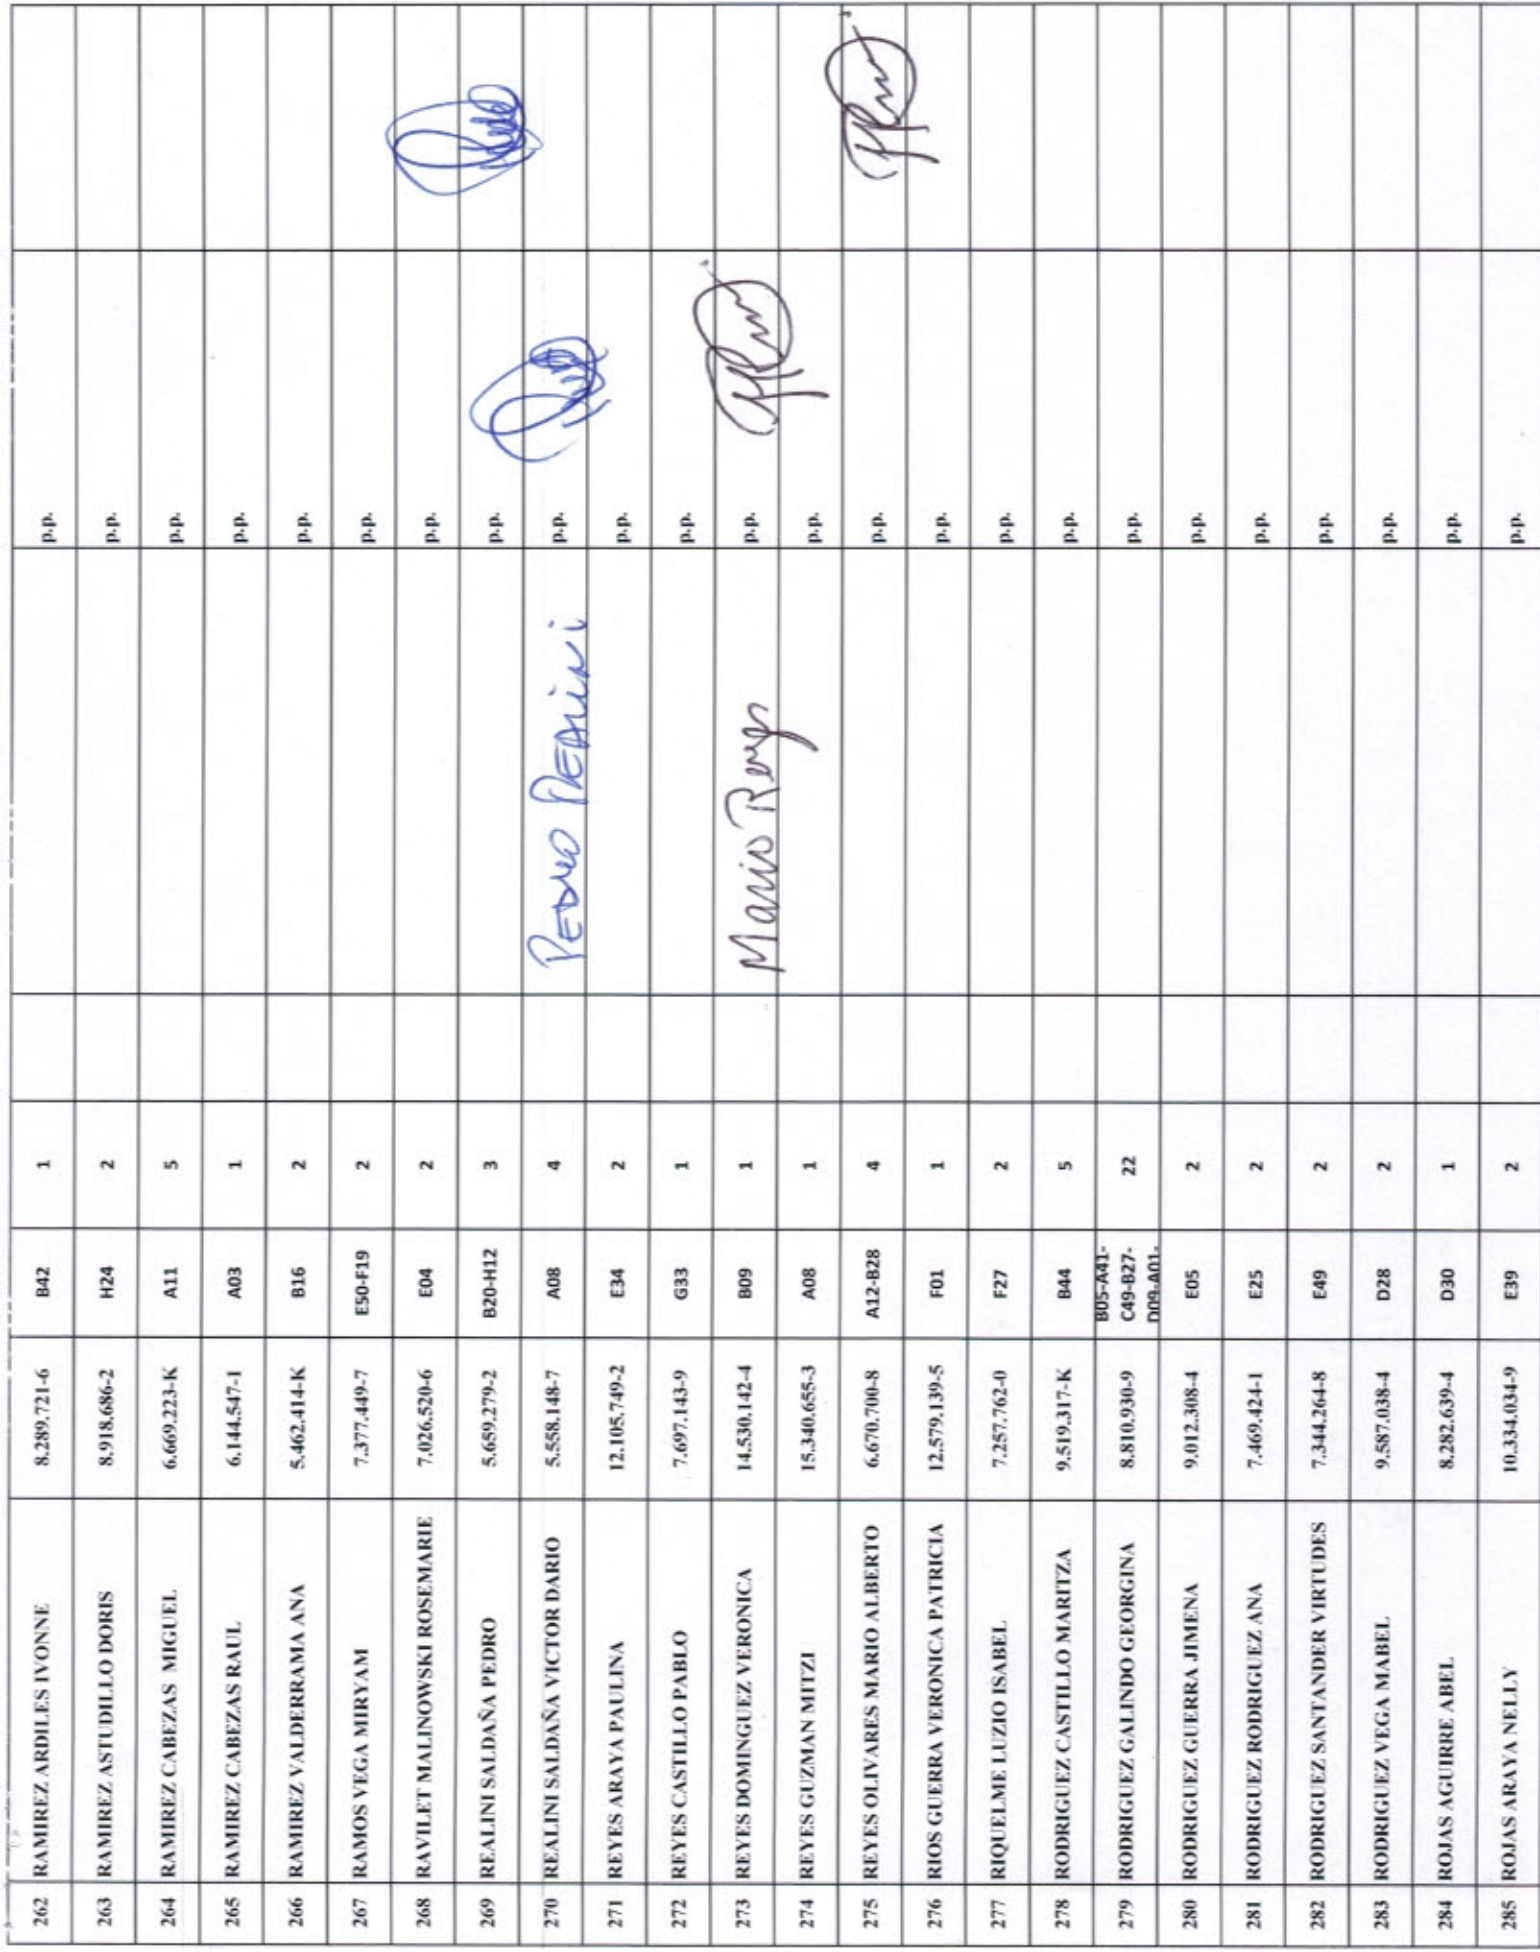 262 RAMIREZ ARDILES IVONNE 8.289.721-6 B42 1 p.p.
263 RAMIREZ ASTUDILLO DORIS 8.918.686-2 H24 2 p.p.
264 RAMIREZ CABEZAS MIGUEL 6.669.223-K A11 5 p.p.
265 RAMIREZ CABEZAS RAUL 6.144.547-1 A03 1 p.p.
266 RAMIREZ VALDERRAMA ANA 5.462.414-K B16 2 p.p.
267 RAMOS VEGA MIRYAM 7.377.449-7 E50-F19 2 p.p.
268 RAVILET MALINOWSKI ROSEMARIE 7.026.520-6 E04 2 p.p.
269 REALINI SALDAÑA PEDRO 5.659.279-2 B20-H12 3 p.p.
270 REALINI SALDAÑA VICTOR DARIO 5.558.148-7 A08 4 PEDRO REALINI p.p.
271 REYES ARAYA PAULINA 12.105.749-2 E34 2 p.p.
272 REYES CASTILLO PABLO 7.697.143-9 G33 1 p.p.
273 REYES DOMINGUEZ VERONICA 14.530.142-4 B09 1 Mario Reyes p.p.
274 REYES GUZMAN MITZI 15.340.655-3 A08 1 p.p.
275 REYES OLIVARES MARIO ALBERTO 6.670.700-8 A12-B28 4 p.p.
276 RIOS GUERRA VERONICA PATRICIA 12.579.139-5 F01 1 p.p.
277 RIQUELME LUZIO ISABEL 7.257.762-0 F27 2 p.p.
278 RODRIGUEZ CASTILLO MARITZA 9.519.317-K B44 5 p.p.
B05-A41-
279 RODRIGUEZ GALINDO GEORGINA 8.810.930-9 C49-B27- 22 p.p.
D09-A01-
280 RODRIGUEZ GUERRA JIMENA 9.012.308-4 E05 2 p.p.
281 RODRIGUEZ RODRIGUEZ ANA 7.469.424-1 E25 2 p.p.
282 RODRIGUEZ SANTANDER VIRTUDES 7.344.264-8 E49 2 p.p.
283 RODRIGUEZ VEGA MABEL 9.587.038-4 D28 2 p.p.
284 ROJAS AGUIRRE ABEL 8.282.639-4 D30 1 p.p.
285 ROJAS ARAYA NELLY 10.334.034-9 E39 2 p.p.